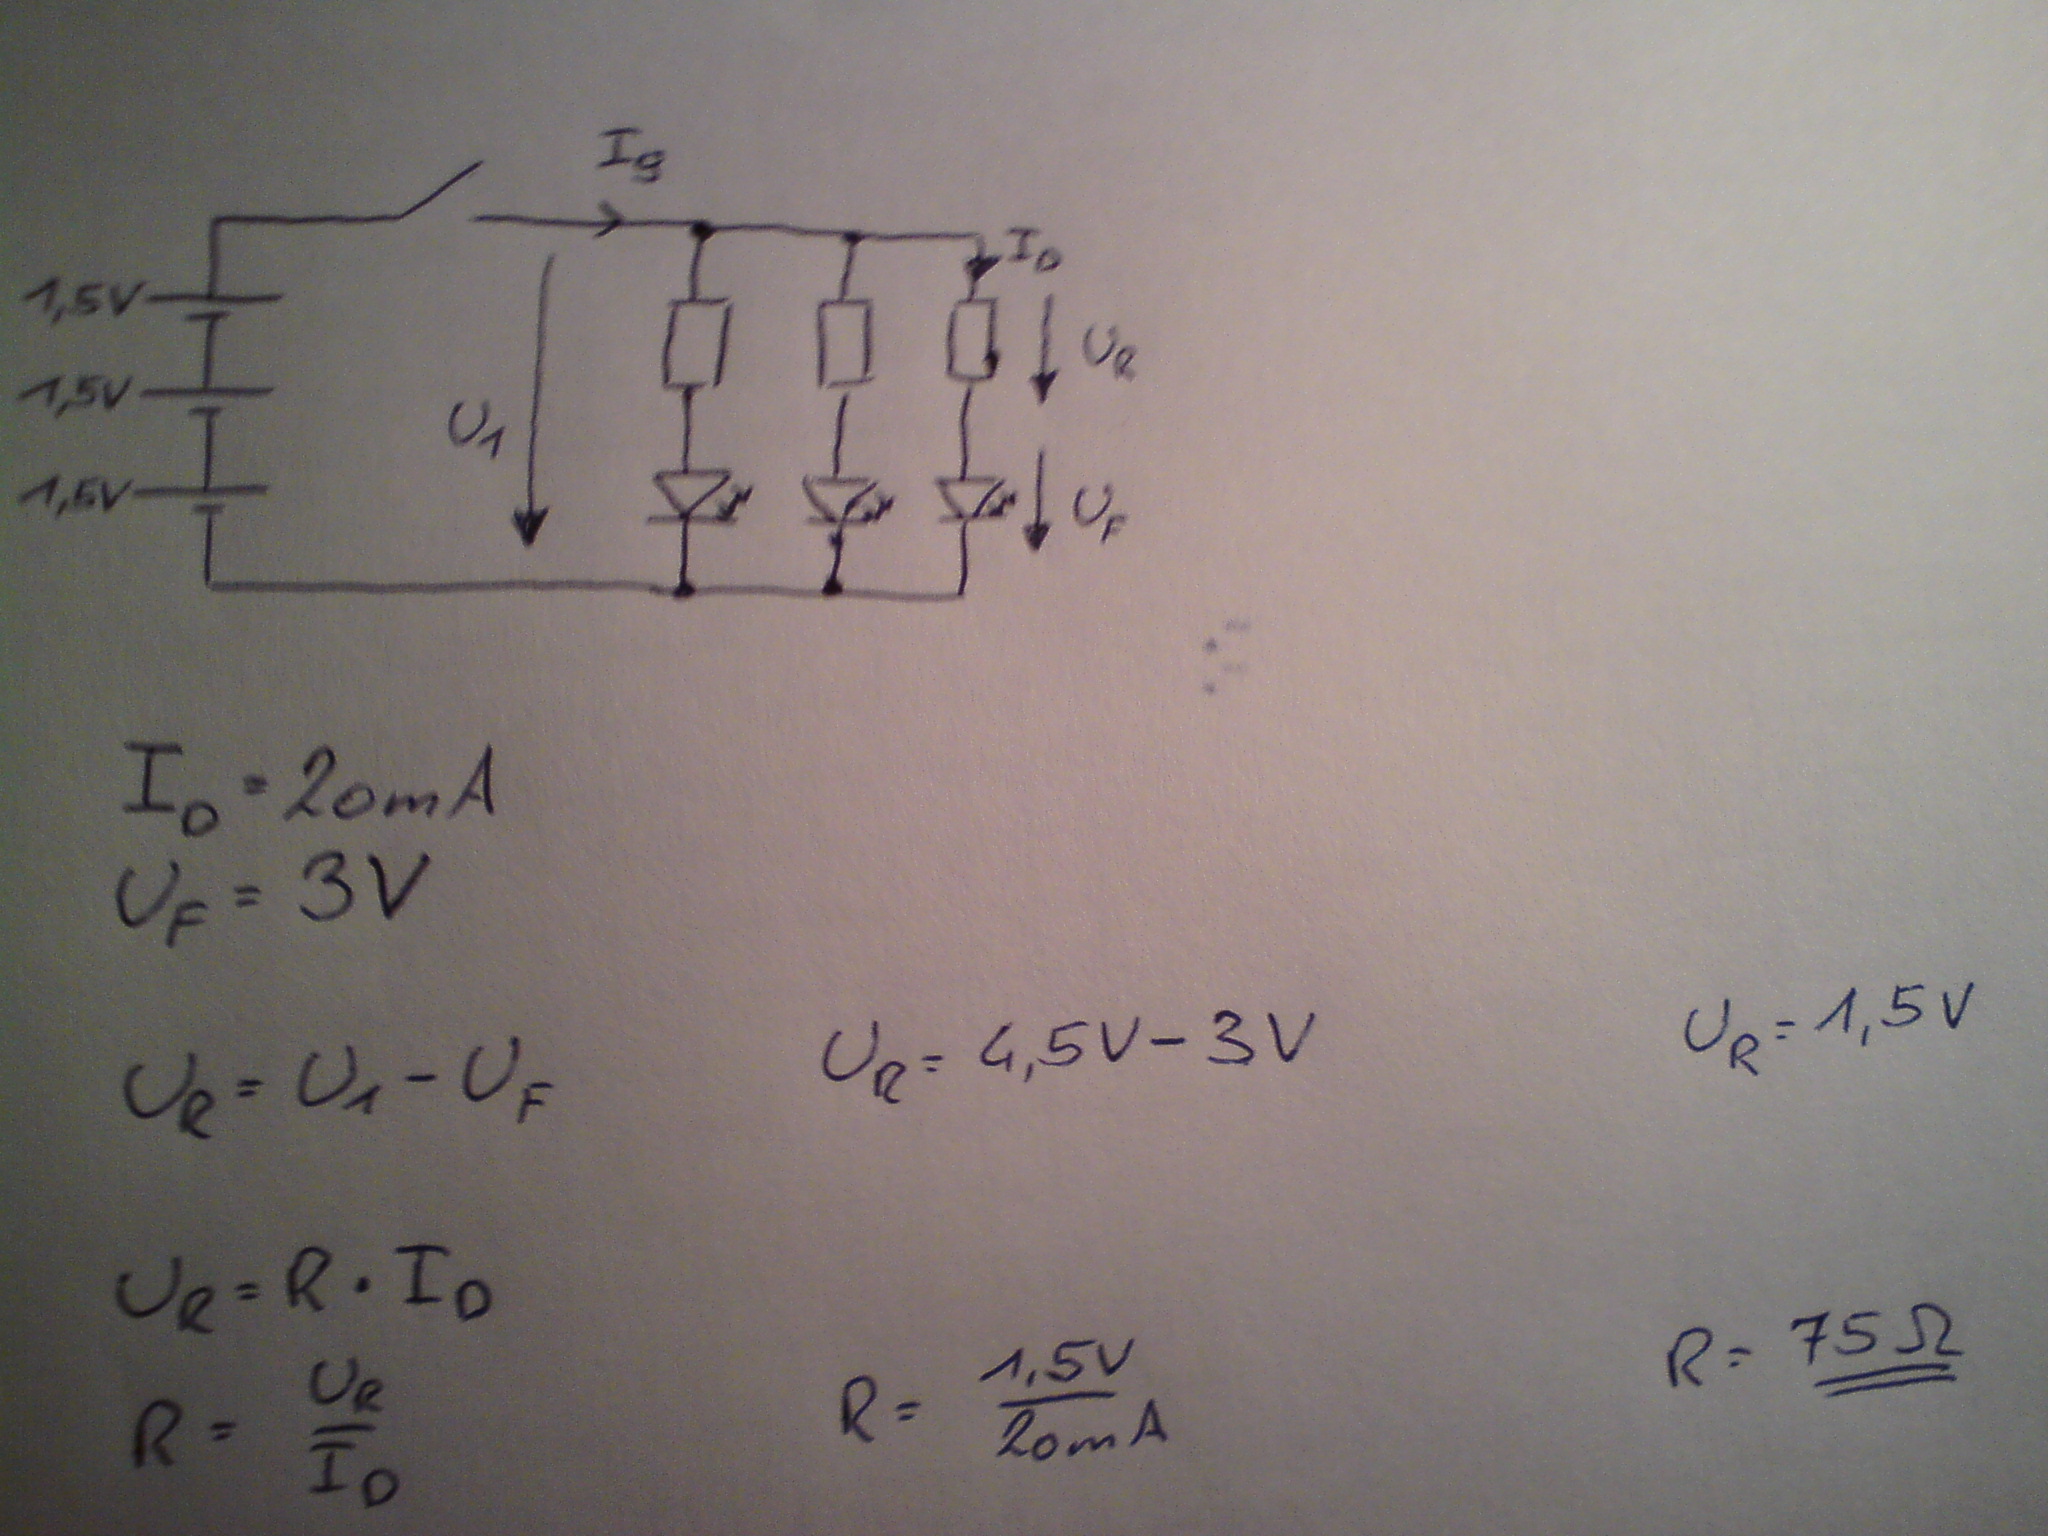 I_g
I_D
1,5V
U_R
1,5V
U_1
1,5V
U_F
I_D = 20mA
U_F = 3V
U_R = U_1 - U_F
U_R = 4,5V - 3V
U_R = 1,5V
U_R = R · I_D
R = U_R / I_D
R = 1,5V / 20mA
R = 75Ω